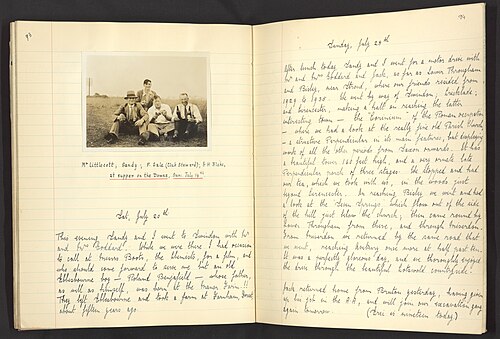 Mr Littlecott, Sandy; F. Sale (Club Steward), & H Blake,
at supper on the Downs, Sun. July 14th
Sat, July 20th
This evening, Sandy and I went to Swindon with Mr
and Mrs Goddard. While we were there I had occasion
to call at Messrs Boots, the Chemists, for a film, and
who should come forward to serve me but an old
Aldbourne boy — Roland — whose father,
as well as himself, was born at the Manor Farm!!
They left Aldbourne and took a farm at
about fifteen years ago.
94
Sunday, July 28th
After lunch today, Sandy and I went for a motor drive with
Mr and Mrs Goddard and Jack, as far as Lower Througham
and Bisley, near Stroud, where our friends resided from
1929 to 1935. We went by way of Swindon, Cricklade,
and Cirencester, making a halt on reaching the latter
interesting town — the "Corinium" of the Roman occupation
— where we had a look at the really fine old Parish Church,
— a structure Perpendicular in its main features, but displaying
work of all the other periods from Saxon onwards. It has
a beautiful tower 162 feet high, and a very ornate late
Perpendicular porch of three stages. We stopped and had
our tea, which we took with us, in the woods just
beyond Cirencester. On reaching Bisley, we went and had
a look at the Seven Springs, which flow out of the side
of the hill just below the church; then same round by
Lower Througham from there, and through Miserden.
From Miserden we returned by the same road that
we went, reaching Aldbourne once more at half past ten.
It was a perfectly glorious day, and we thoroughly enjoyed
the drive through the beautiful Cotswold countryside.
Jack returned home from yesterday, having given
up his job in the , and will join our excavation gang
again tomorrow. (Tree is nineteen today)